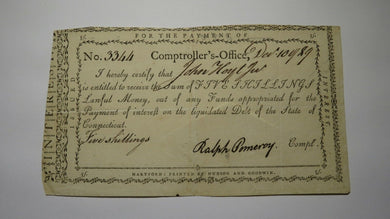 FOR THE PAYMENT OF
INTEREST
INTEREST
No. 3344 Comptroller's-Office, Decr 10 1789
I hereby certify that John Hoyt Jur
is entitled to receive the Sum of FIVE SHILLINGS
Lawful Money, out of any Funds appropriated for the
Payment of interest on the liquidated Debt of the State of
Connecticut.
Five shillings
Ralph Pomeroy. Compt.
HARTFORD: PRINTED BY HUDSON AND GOODWIN.